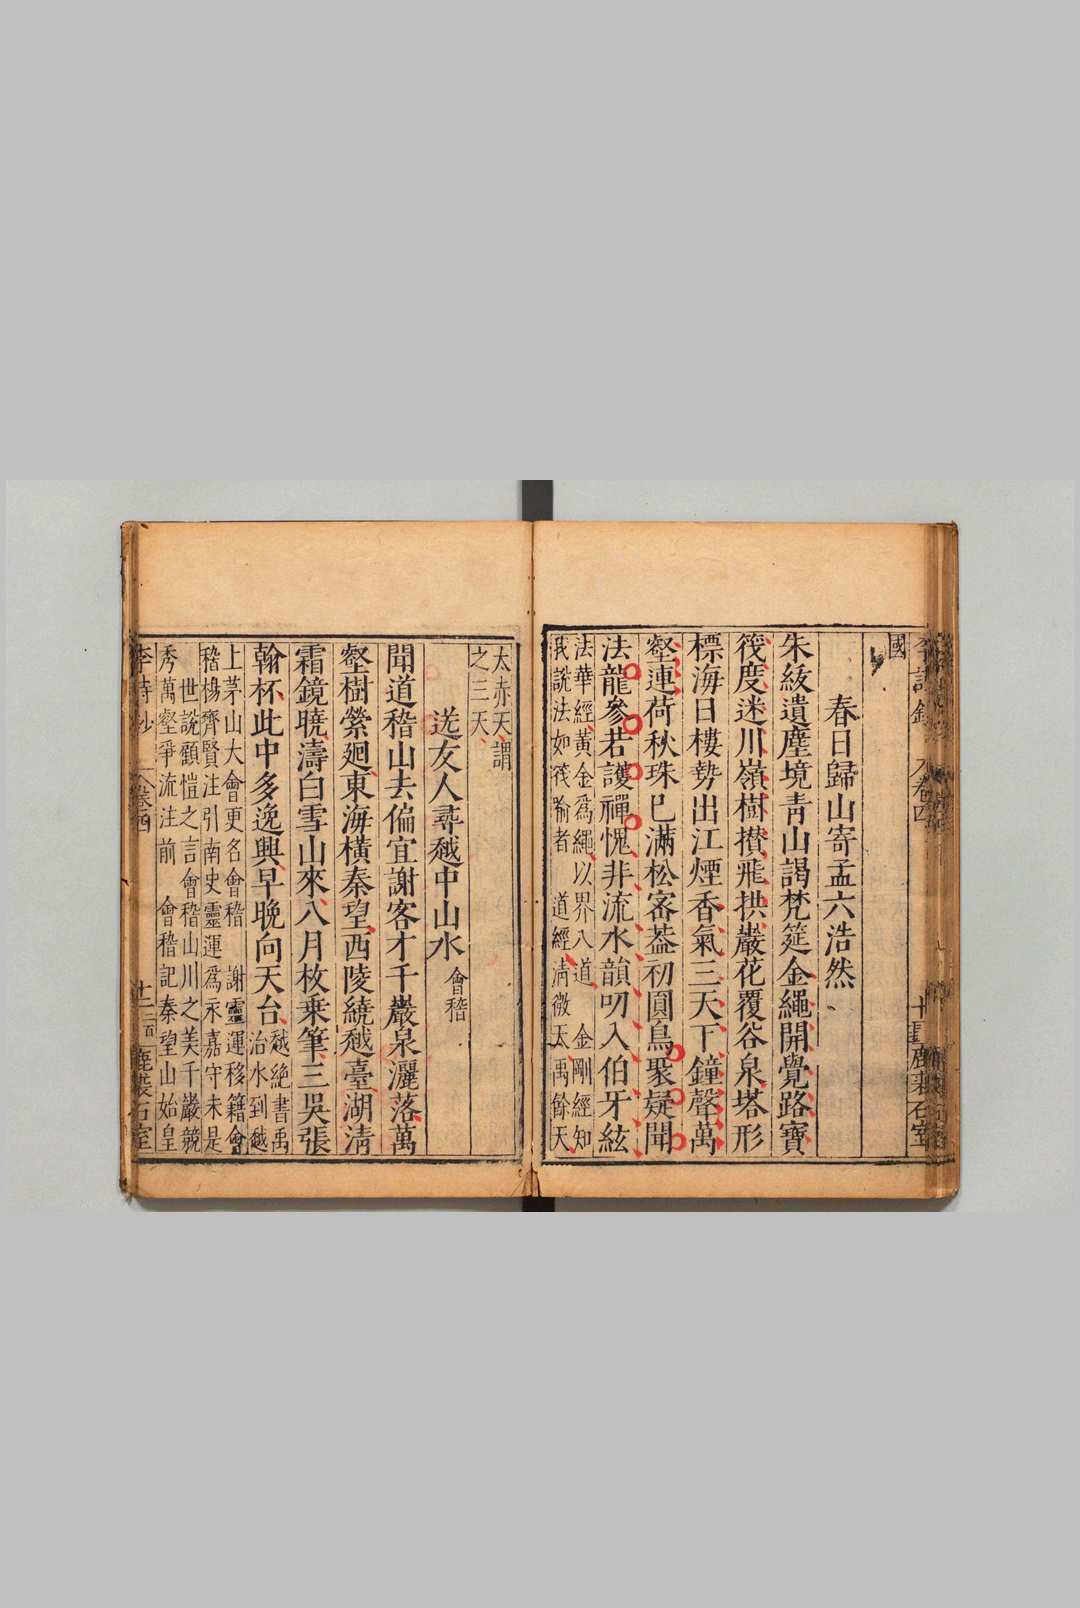 國
春日歸山寄孟六浩然
朱紱遺塵境青山謁梵筵金繩開覺路寶
筏度迷川嶺樹攅飛拱巖花覆谷泉塔形
標海日樓勢出江煙香氣三天下鐘聲萬
壑連荷秋珠已滿松宻葢初圓鳥聚疑聞
法龍參若護禪愧非流水韻叨入伯牙絃
法華經黄金爲繩以界八道 金剛經知
我說法如筏喻者 道經淸微天禹餘天
太赤天謂
之三天
送友人尋越中山水 會稽
聞道稽山去偏宜謝客才千巖泉灑落萬
壑樹縈廻東海橫秦望西陵繞越臺湖淸
霜鏡曉濤白雪山來八月枚乗筆三吳張
翰杯此中多逸興早晚向天台 越絶書禹
治水到越
上茅山大會更名會稽 謝靈運移籍會
稽楊齊賢注引南史靈運爲永嘉守未是
世說顧愷之言會稽山川之美千巖競
秀萬壑爭流注前 會稽記秦望山始皇
李詩鈔 卷四 十二 鹿裘石室